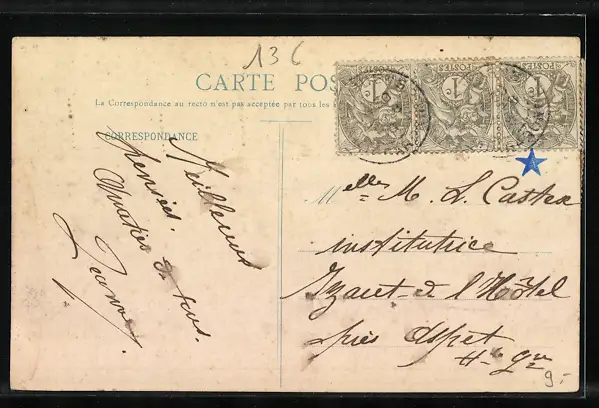 136
CARTE POS
La Correspondance au recto n'est pas acceptée par tous les
CORRESPONDANCE
Meilleures
pensées.
Amitiés à tous.
Jeanne
POSTES 1c
POSTES 1c
POSTES 1c
Melles M. L. Castex
institutrice
Izaut-de l'Hôtel
près Aspet
Hte Gne
9.-